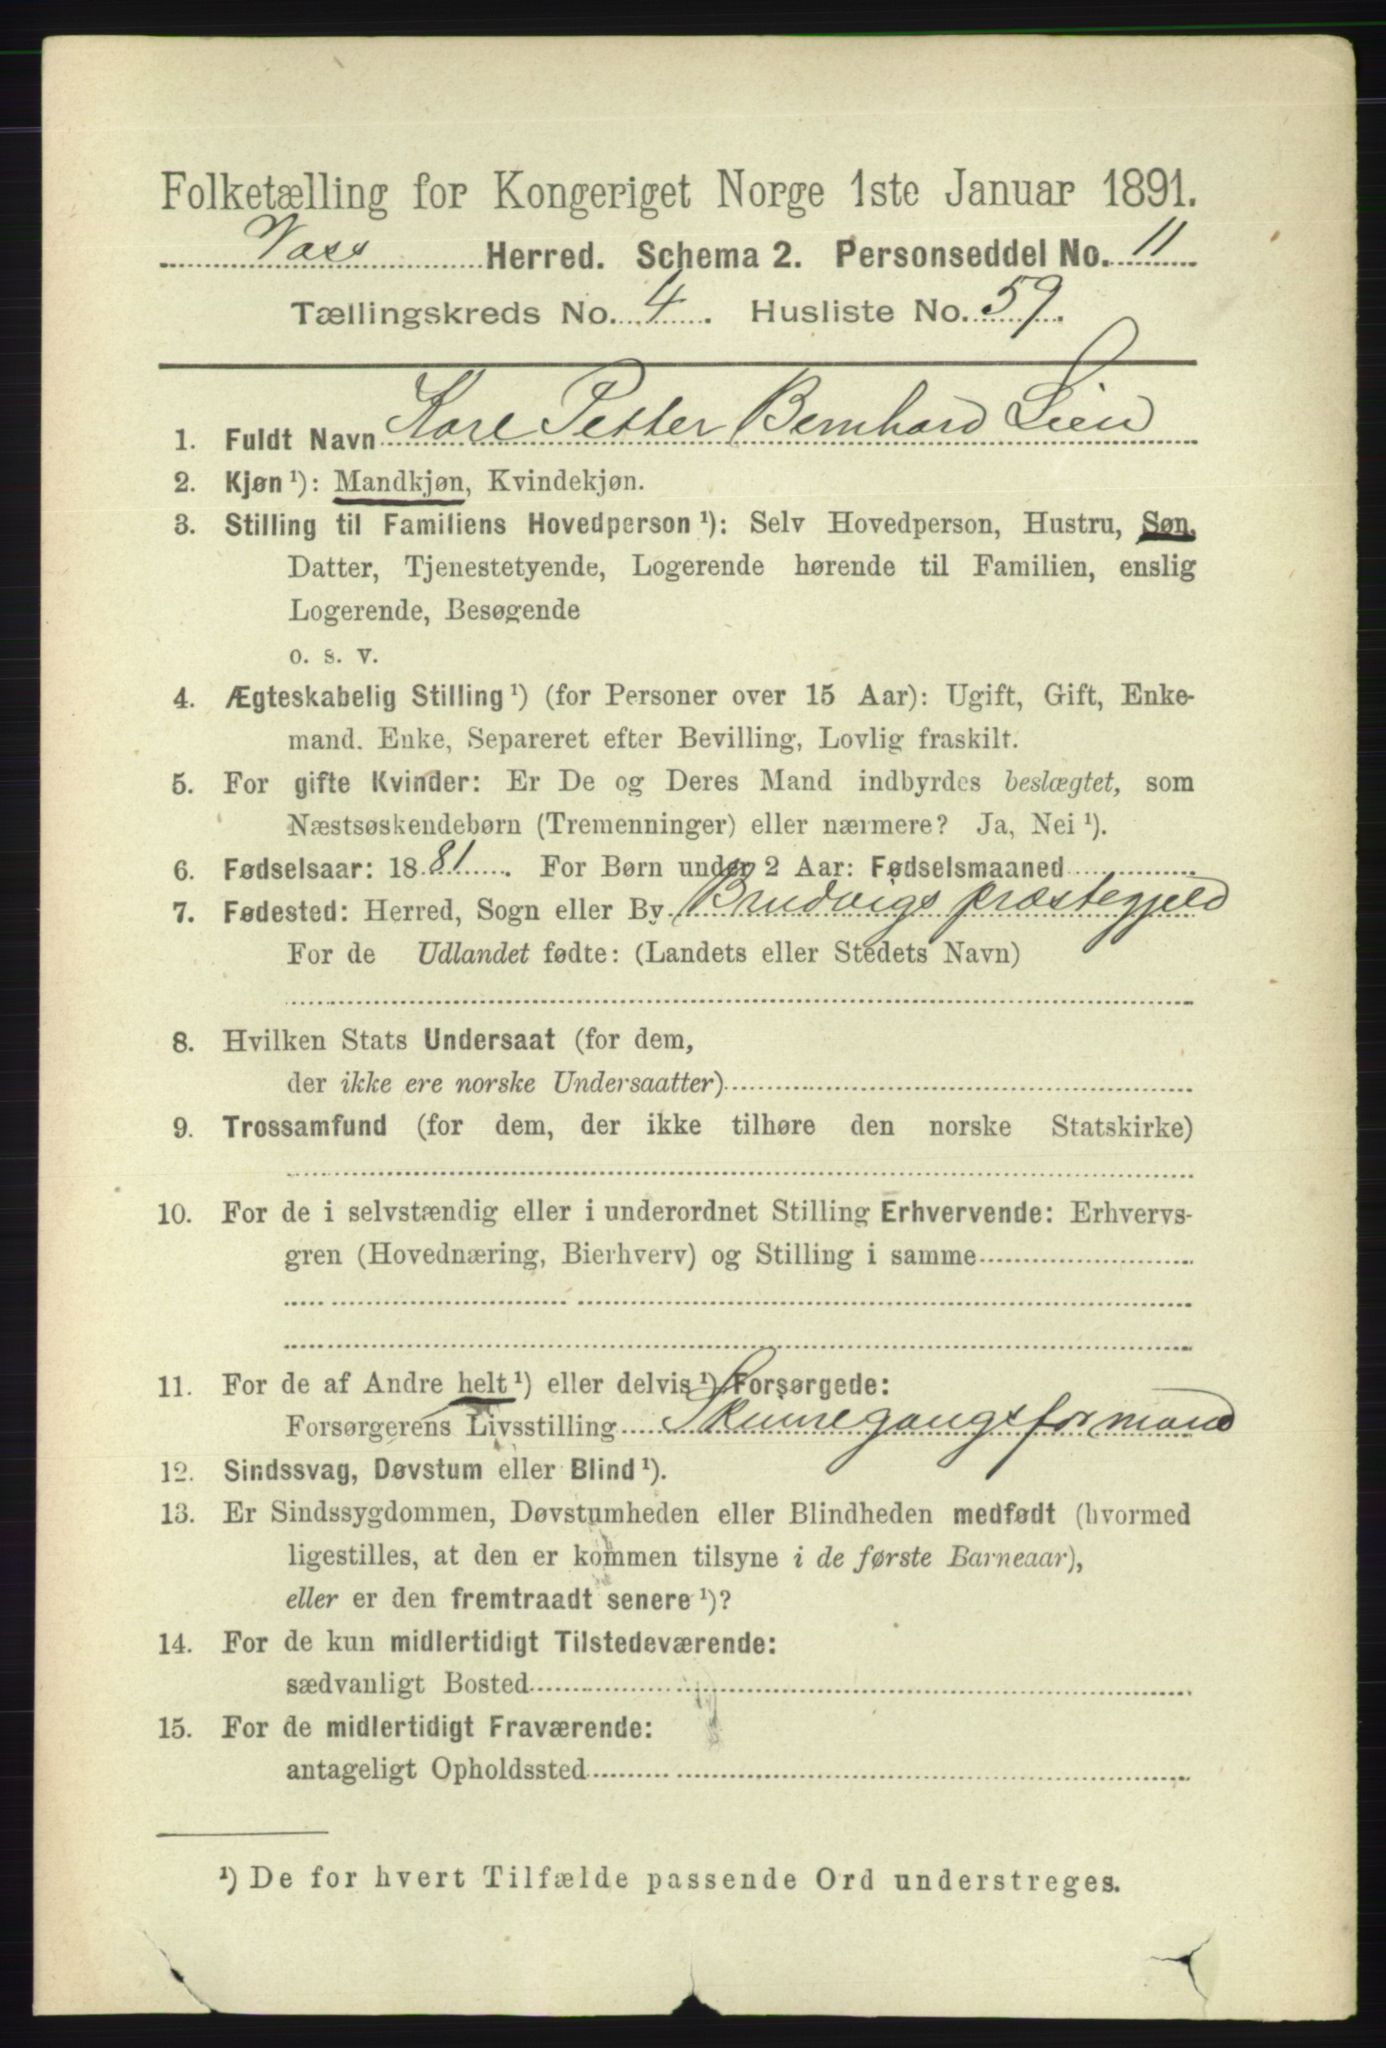 Folketælling for Kongeriget Norge 1ste Januar 1891.
Voss Herred. Schema 2. Personseddel No. 11
Tællingskreds No. 4. Husliste No. 59.
1. Fuldt Navn Karl Petter Bernhard Lien
2. Kjøn ¹): Mandkjøn, Kvindekjøn.
3. Stilling til Familiens Hovedperson ¹): Selv Hovedperson, Hustru, Søn,
Datter, Tjenestetyende, Logerende hørende til Familien, enslig
Logerende, Besøgende
o. s. v.
4. Ægteskabelig Stilling ¹) (for Personer over 15 Aar): Ugift, Gift, Enke-
mand. Enke, Separeret efter Bevilling, Lovlig fraskilt.
5. For gifte Kvinder: Er De og Deres Mand indbyrdes beslægtet, som
Næstsøskendebørn (Tremenninger) eller nærmere? Ja, Nei ¹).
6. Fødselsaar: 1881. For Børn under 2 Aar: Fødselsmaaned
7. Fødested: Herred, Sogn eller By Brudvigs præstegjeld
For de Udlandet fødte: (Landets eller Stedets Navn)
8. Hvilken Stats Undersaat (for dem,
der ikke ere norske Undersaatter)
9. Trossamfund (for dem, der ikke tilhøre den norske Statskirke)
10. For de i selvstændig eller i underordnet Stilling Erhvervende: Erhvervs-
gren (Hovednæring, Bierhverv) og Stilling i samme
11. For de af Andre helt ¹) eller delvis ¹) Forsørgede:
Forsørgerens Livsstilling Skinnegangsformand
12. Sindssvag, Døvstum eller Blind ¹).
13. Er Sindssygdommen, Døvstumheden eller Blindheden medfødt (hvormed
ligestilles, at den er kommen tilsyne i de første Barneaar),
eller er den fremtraadt senere ¹)?
14. For de kun midlertidigt Tilstedeværende:
sædvanligt Bosted
15. For de midlertidigt Fraværende:
antageligt Opholdssted
¹) De for hvert Tilfælde passende Ord understreges.